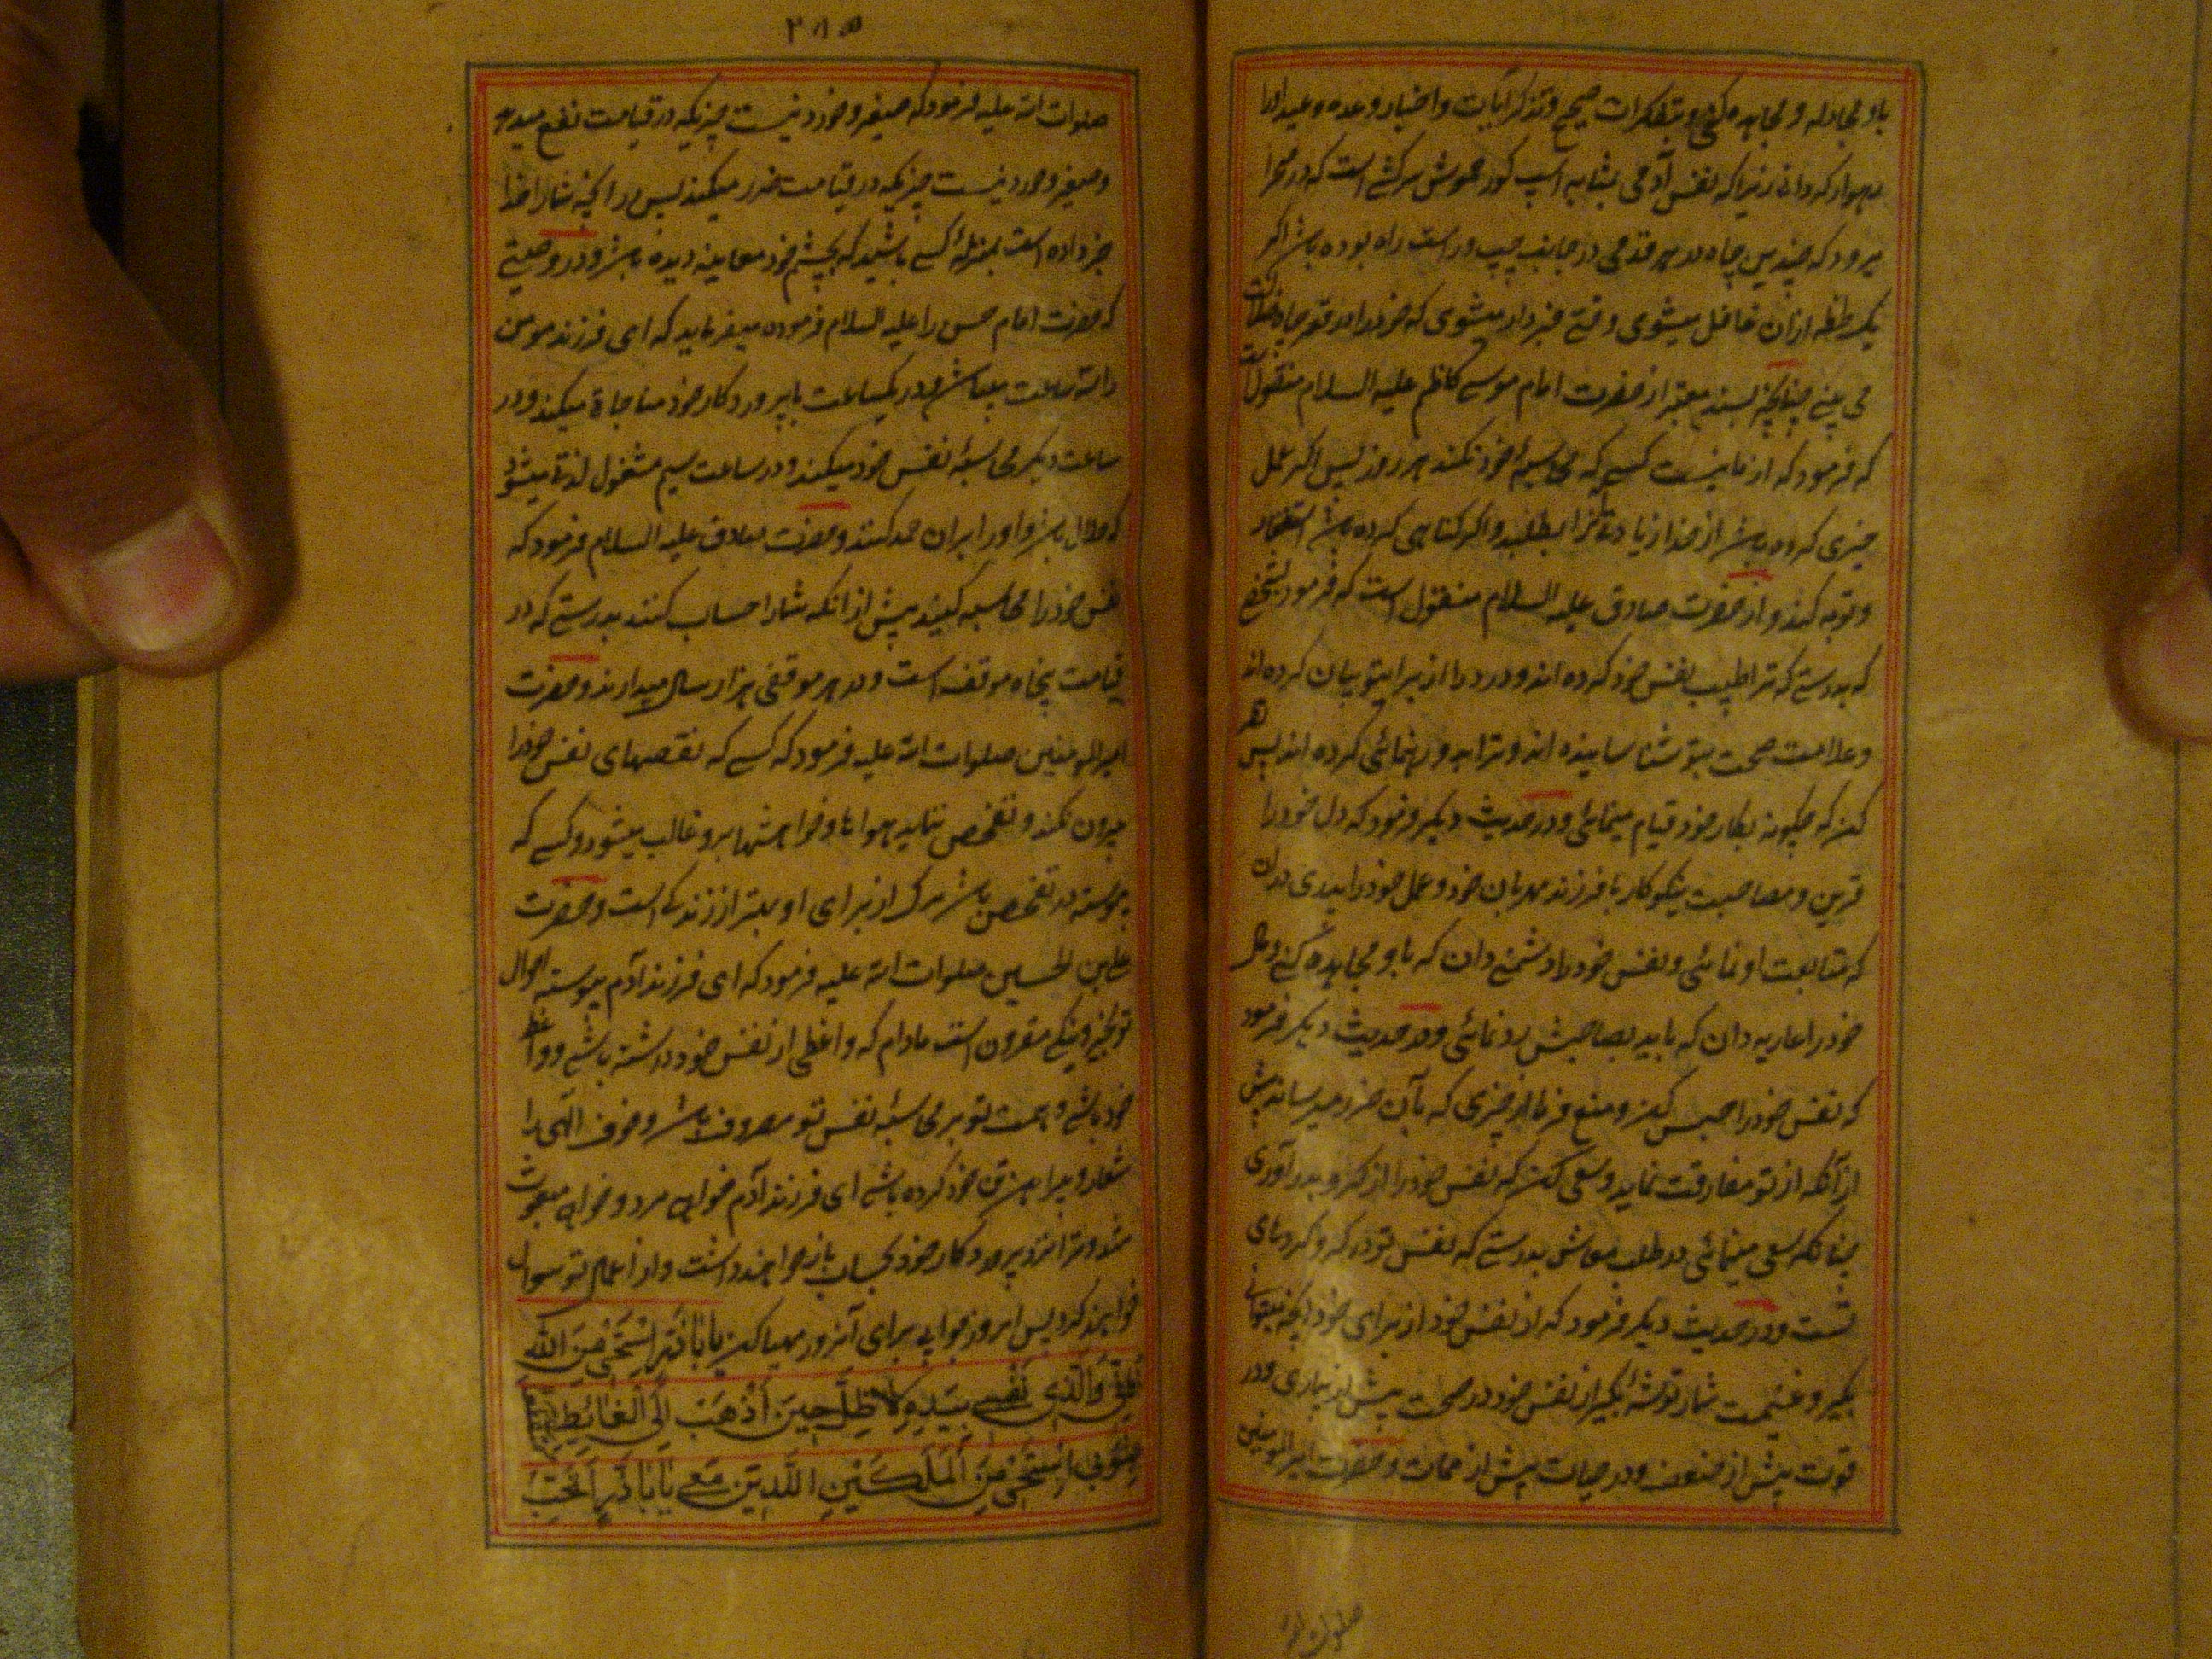 با او مجادله و مجاهده کنی و بتفکرات صحیح و تذکر آیات و اخبار و وعده و وعید او را
رهوار گردانی زیرا که نفس آدمی بمثابه اسپ کور چموش سرکشی است که در صحرا
میرود که چندین چاه در هر قدمی در جانب چپ و راست راه بوده باشد اگر
یک لحظه ازان غافل میشوی وقتی خبردار میشوی که خود را در قعر چاه ضلالت
می بینی چنانچه بسند معتبر از حضرت امام موسی کاظم علیه السلام منقول است
که فرمود که از ما نیست کسی که محاسبه خود نکند هر روز پس اگر عمل
خیری کرده باشد از خدا زیادتی آنرا بطلبد و اگر گناهی کرده باشد استغفار
و توبه کند و از حضرت صادق علیه السلام منقول است که فرمود بشخصی
که بدرستی که ترا طبیب نفس خود کرده اند و درد را از برای تو بیان کرده اند
و علامت صحت بتو شناسانیده اند و ترا بدوا رهنمائی کرده اند پس نظر
کن که چگونه بکار خود قیام مینمائی و در حدیث دیگر فرمود که دل خود را
قرین و مصاحب نیکوکار یا فرزند مهربان خود و عمل خود را پدری دان
که متابعت او نمائی و نفس خود را دشمنی دان که با او مجاهده کنی و مال
خود را عاریه دان که باید بصاحبش رد نمائی و در حدیث دیگر فرمود
که نفس خود را حبس کن و منع فرما از چیزی که بآن ضرر میرساند پیش
از آنکه از تو مفارقت نماید و سعی کن که نفس خود را از گرو بدر آوری
چنانکه سعی مینمائی در طلب معاش بدرستی که نفس تو در گرو کردهای
تست و در حدیث دیگر فرمود که از نفس خود از برای خود آنچه میتوانی
بگیر و غنیمت شمار توشه بگیر از نفس خود در صحت پیش از بیماری و در
قوت پیش از ضعف و در حیات پیش از ممات و حضرت امیر المومنین
صلوات الله
۲۸۵
صلوات الله علیه فرمود که صغیر و خورد نیست چیزیکه در قیامت نفع میدهد
و صغیر و خورد نیست چیزیکه در قیامت ضرر میکند پس در آنچه شما را خدا
خبر داده است بمنزله کسی باشید که بچشم خود معاینه دیده باشد و در وصیتی
که حضرت امام حسن را علیه السلام فرموده میفرماید که ای فرزند مومن
را سه ساعت میباشد در یکساعت با پروردگار خود مناجاة میکند و در
ساعت دیگر محاسبه نفس خود میکند و در ساعت سیم مشغول لذتی میشود
که حلال باشد و او را بران حمد کنند و حضرت صادق علیه السلام فرمود که
نفس خود را محاسبه کنید پیش از انکه شما را حساب کنند بدرستی که در
قیامت پنجاه موقف است و در هر موقفی هزار سال میدارند و حضرت
امیر المومنین صلوات الله علیه فرمود که کسی که نقصهای نفس خود را
بیرون نکند و تفحص ننماید هواها و خواهشها برو غالب میشود و کسی که
پیوسته در تفحص باشد مرگ از برای او بهتر از زندگی است و حضرت
علی بن الحسین صلوات الله علیه فرمود که ای فرزند آدم پیوسته احوال
تو بخیر و نیکی مقرون است مادام که واعظی از نفس خود داشته باشی و واعظ
خود باشی و همت تو بر محاسبه نفس تو مصروف باشد و خوف الهی را
شعار و پیراهن تن خود کرده باشی ای فرزند آدم خواهی مرد و خواهی مبعوث
شد و ترا نزد پروردگار خود بحساب باز خواهند داشت و از اعمال تو سوال
خواهند کرد پس امروز جوابی برای آنروز مهیا کن يَا اَبَاذَرٍّ اِسْتَحْيِ مِنَ اللّٰهِ
فَاِنِّي وَالَّذِي نَفْسِي بِيَدِهِ لَاَظِلُّ حِينَ اَذْهَبُ اِلَى الْغَائِطِ
بِثَوْبِي اَسْتَحْيِي مِنَ الْمَلَكَيْنِ اللَّذَيْنِ مَعِي يَا اَبَاذَرٍّ اَتُحِبُّ